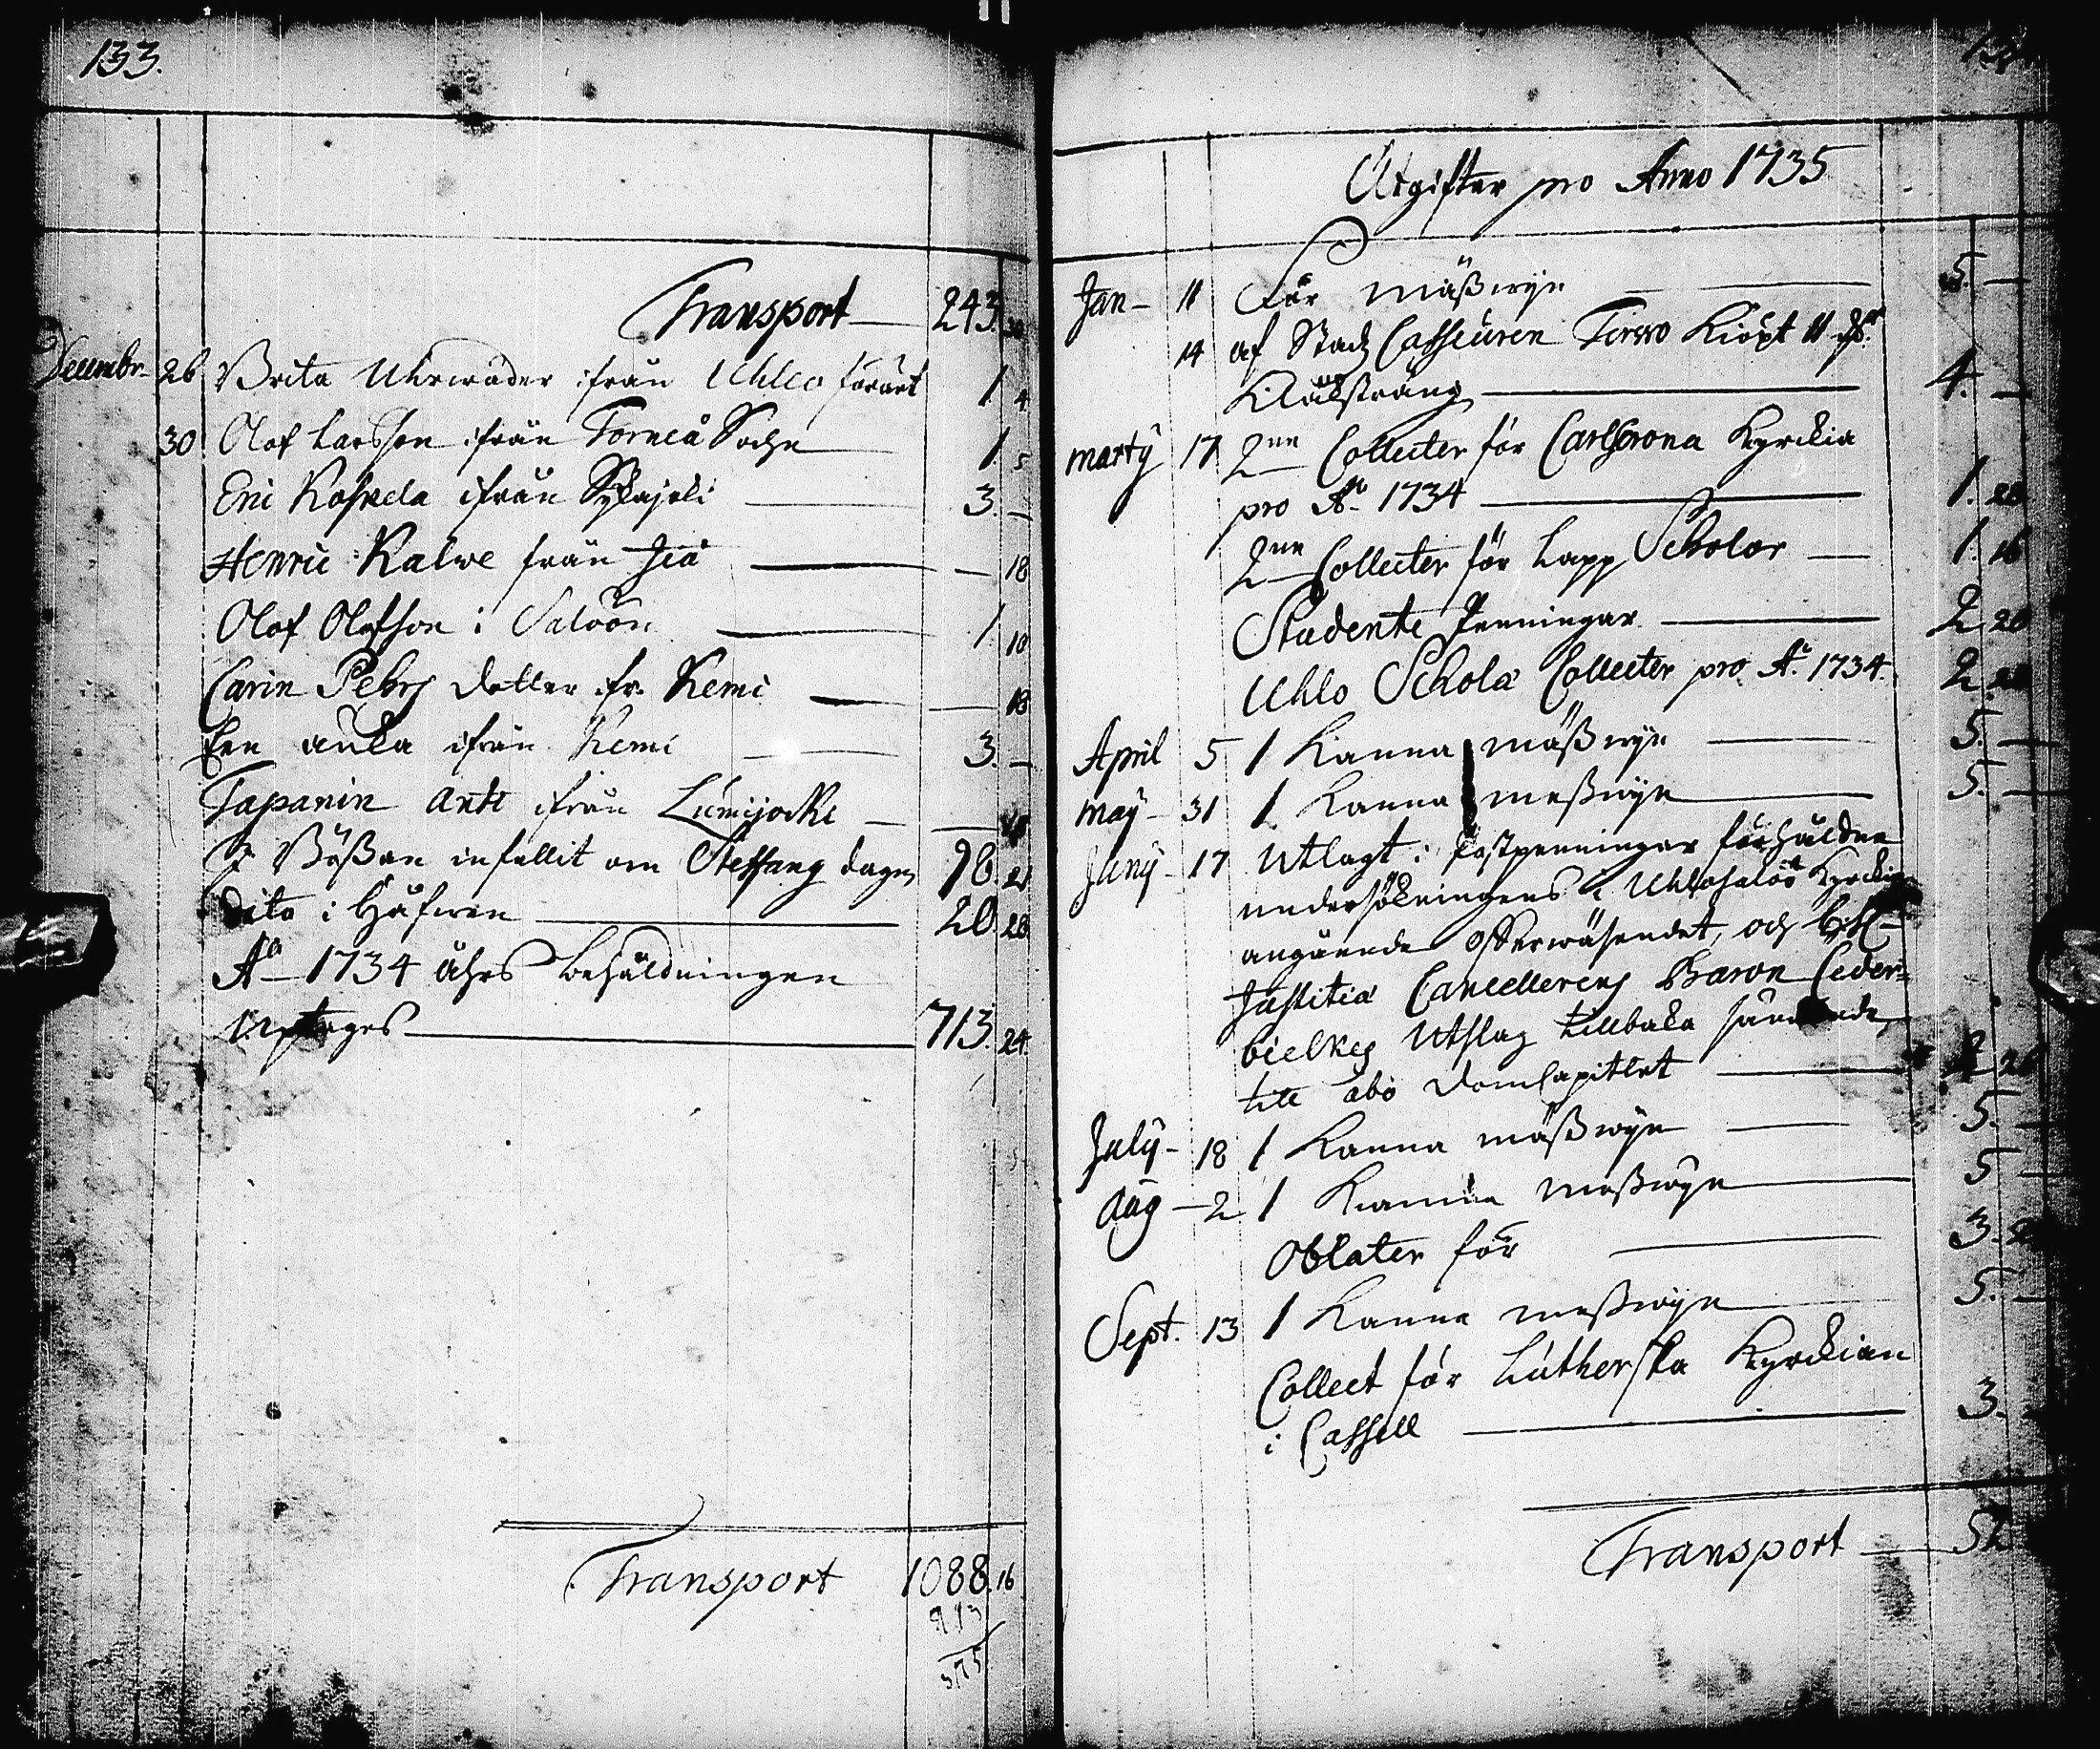 133.
Transport 243. 30
Decembr 26 Brita Uhrwäder ifrån Uhleo förärt 1 4
30 Olof Larsson ifrån Torneå Sochn 1. 5
Eric Koskela ifrån Sijkajoki 3. –
Henric Kalwe från Jiå – 18
Olof Olofsson i Saloön 1 18
Carin Pehrs dotter ifr. Kemi – 18
Een äncka ifrån Kemi 3. –
Tapanin Anti ifrån Lumijocki –
J Bößan infallit om Steffans dagen 98. 21
dito i Håfwen 20. 28
Aō 1734 åhrs behåldningen
uptages 713. 24
Transport 1088. 16
713
375
Utgifter pro Anno 1735
Jan – 11 För mäßwijn 5. –
14 af Stads Casseuren Tirro Kiöpt 11
Klåcksträng 4. –
Martij 17 2ne Collecter för Carlscrona Kyrckia
pro Aō 1734 1. 20
2ne Collecter för Lapp Scholor 1. 16
Studente Penningar 2 20
Uhlo Schola Collecter pro Aō 1734. 2. 20
April 5 1 Kanna mäßwijn 5. –
May – 31 1 Kanna meßwijn 5. –
Junij – 17 Utlagt i postpenningar för håldne
undersökningens i Uhlosalo Kyrckia
angående offerwäsendet, och
Justitiæ Cancellerens Baron Ceder=
bielkes Utslag tillbaka
till åbo DomCapitlet 2 20
Julij – 18 1 Kanna mäßwijn 5. –
Aug – 2 1 Kanna meßwijn 5 –
Oblater för 3.
Sept. 13 1 Kanna meßwijn 5. –
Collect för Lutherska Kyrckian
i Cassell 3.
Transport 52